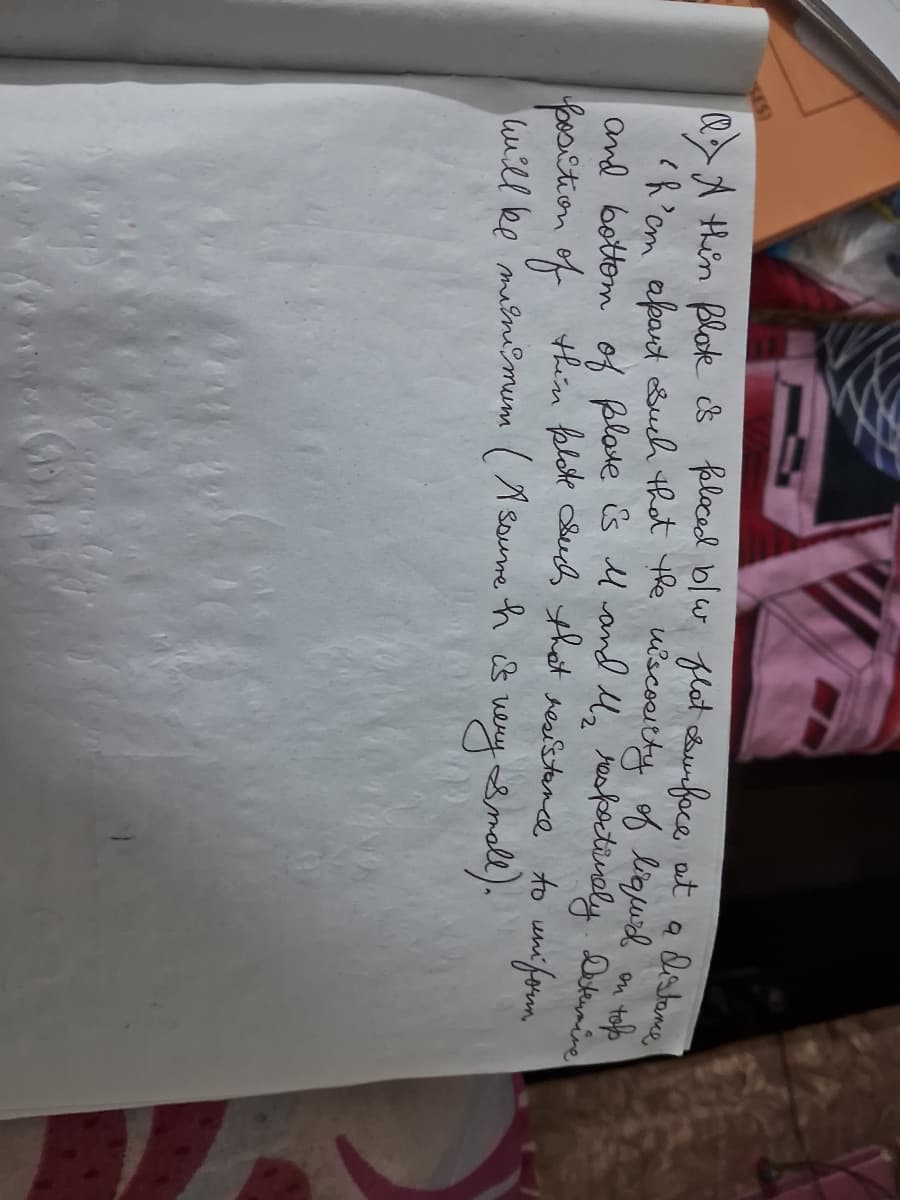 Q.) A thin plate is placed b/w flat surface at a distance
'h' cm apart such that the viscosity of liquid on top
and bottom of plate is μ and μ₂ respectively. Determine
position of thin plate such that resistance to uniform
will be minimum (Assume h is very small).